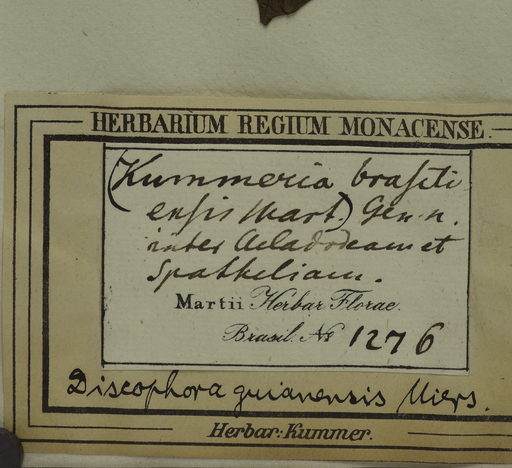 HERBARIUM REGIUM MONACENSE.
(Kummeria brasili
ensis Mart.) Gen. n.
inter Aeladodeam et
Spatheliam.
Martii Herbar. Florae.
Brasil. No 1276
Discophora guianensis Miers.
Herbar: Kummer.